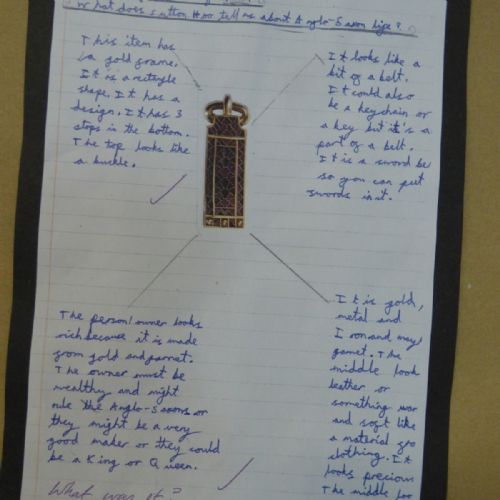 What does Sutton Hoo tell me about Anglo-Saxon life?
This item has
a gold frame.
It is a rectagle
shape. It has a
design. It has 3
stops in the bottom.
The top looks like
a buckle.
It looks like a
bit of a belt.
It could also
be a keychain or
a key but it's a
part of a belt.
It is a sword be
so you can put
swords in it.
The person/owner looks
rich because it is made
from gold and garnet.
The owner must be
wealthy and might
rule the Anglo-Saxons or
they might be a very
good maker or they could
be a King or Queen.
It is gold,
metal and
Iron and may
garnet. The
middle look
leather or
something war
and soft like
a material fro
clothing. It
looks precious
The middle for
What was it?